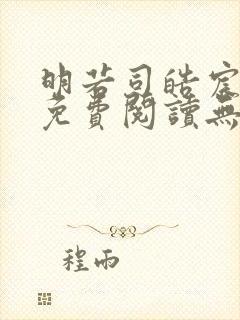 明若司皓宸
免費閱讀無
程雨